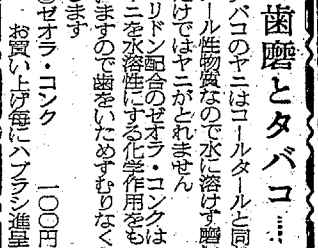 歯磨とタバコ……
バコのヤニはコールタールと同
ール性物質なので水に溶けず磨
けではヤニがとれません
リドン配合のゼオラ・コンクは
ニを水溶性にする化学作用をも
いますので歯をいためずむりなく
ます
ゼオラ・コンク 一〇〇円
お買い上げ毎にハブラシ進呈